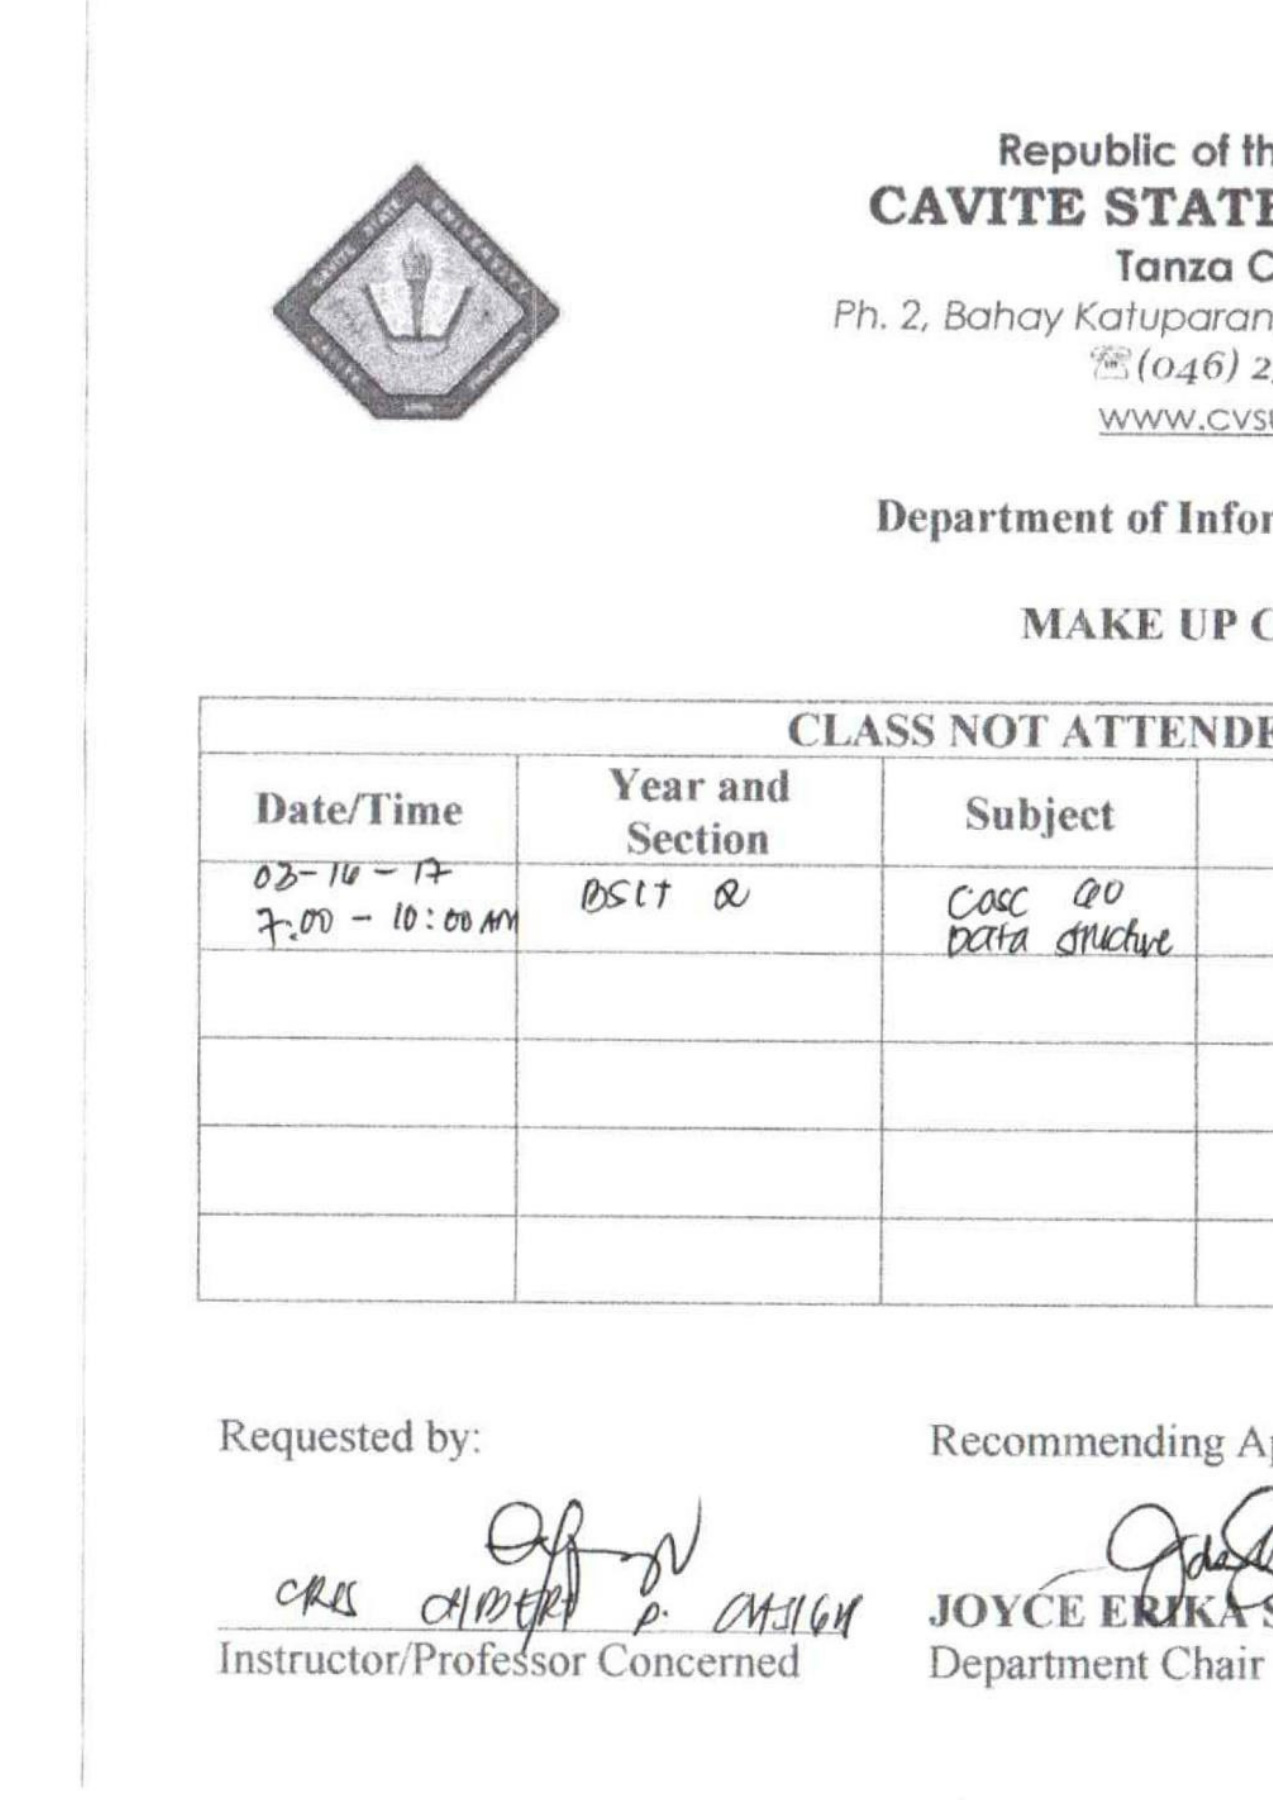 Republic of th
CAVITE STATE
Tanza C
Ph. 2, Bahay Katuparan
(046) 2
www.cvsu
Department of Infor
MAKE UP C
CLASS NOT ATTENDE
Date/Time
Year and
Section
Subject
03-16-17
7:00 - 10:00 AM
BSIT 2
COSC
Data Structure
Requested by:
Recommending Ap
CRIS P.
Instructor/Professor Concerned
JOYCE ERIKA S
Department Chair